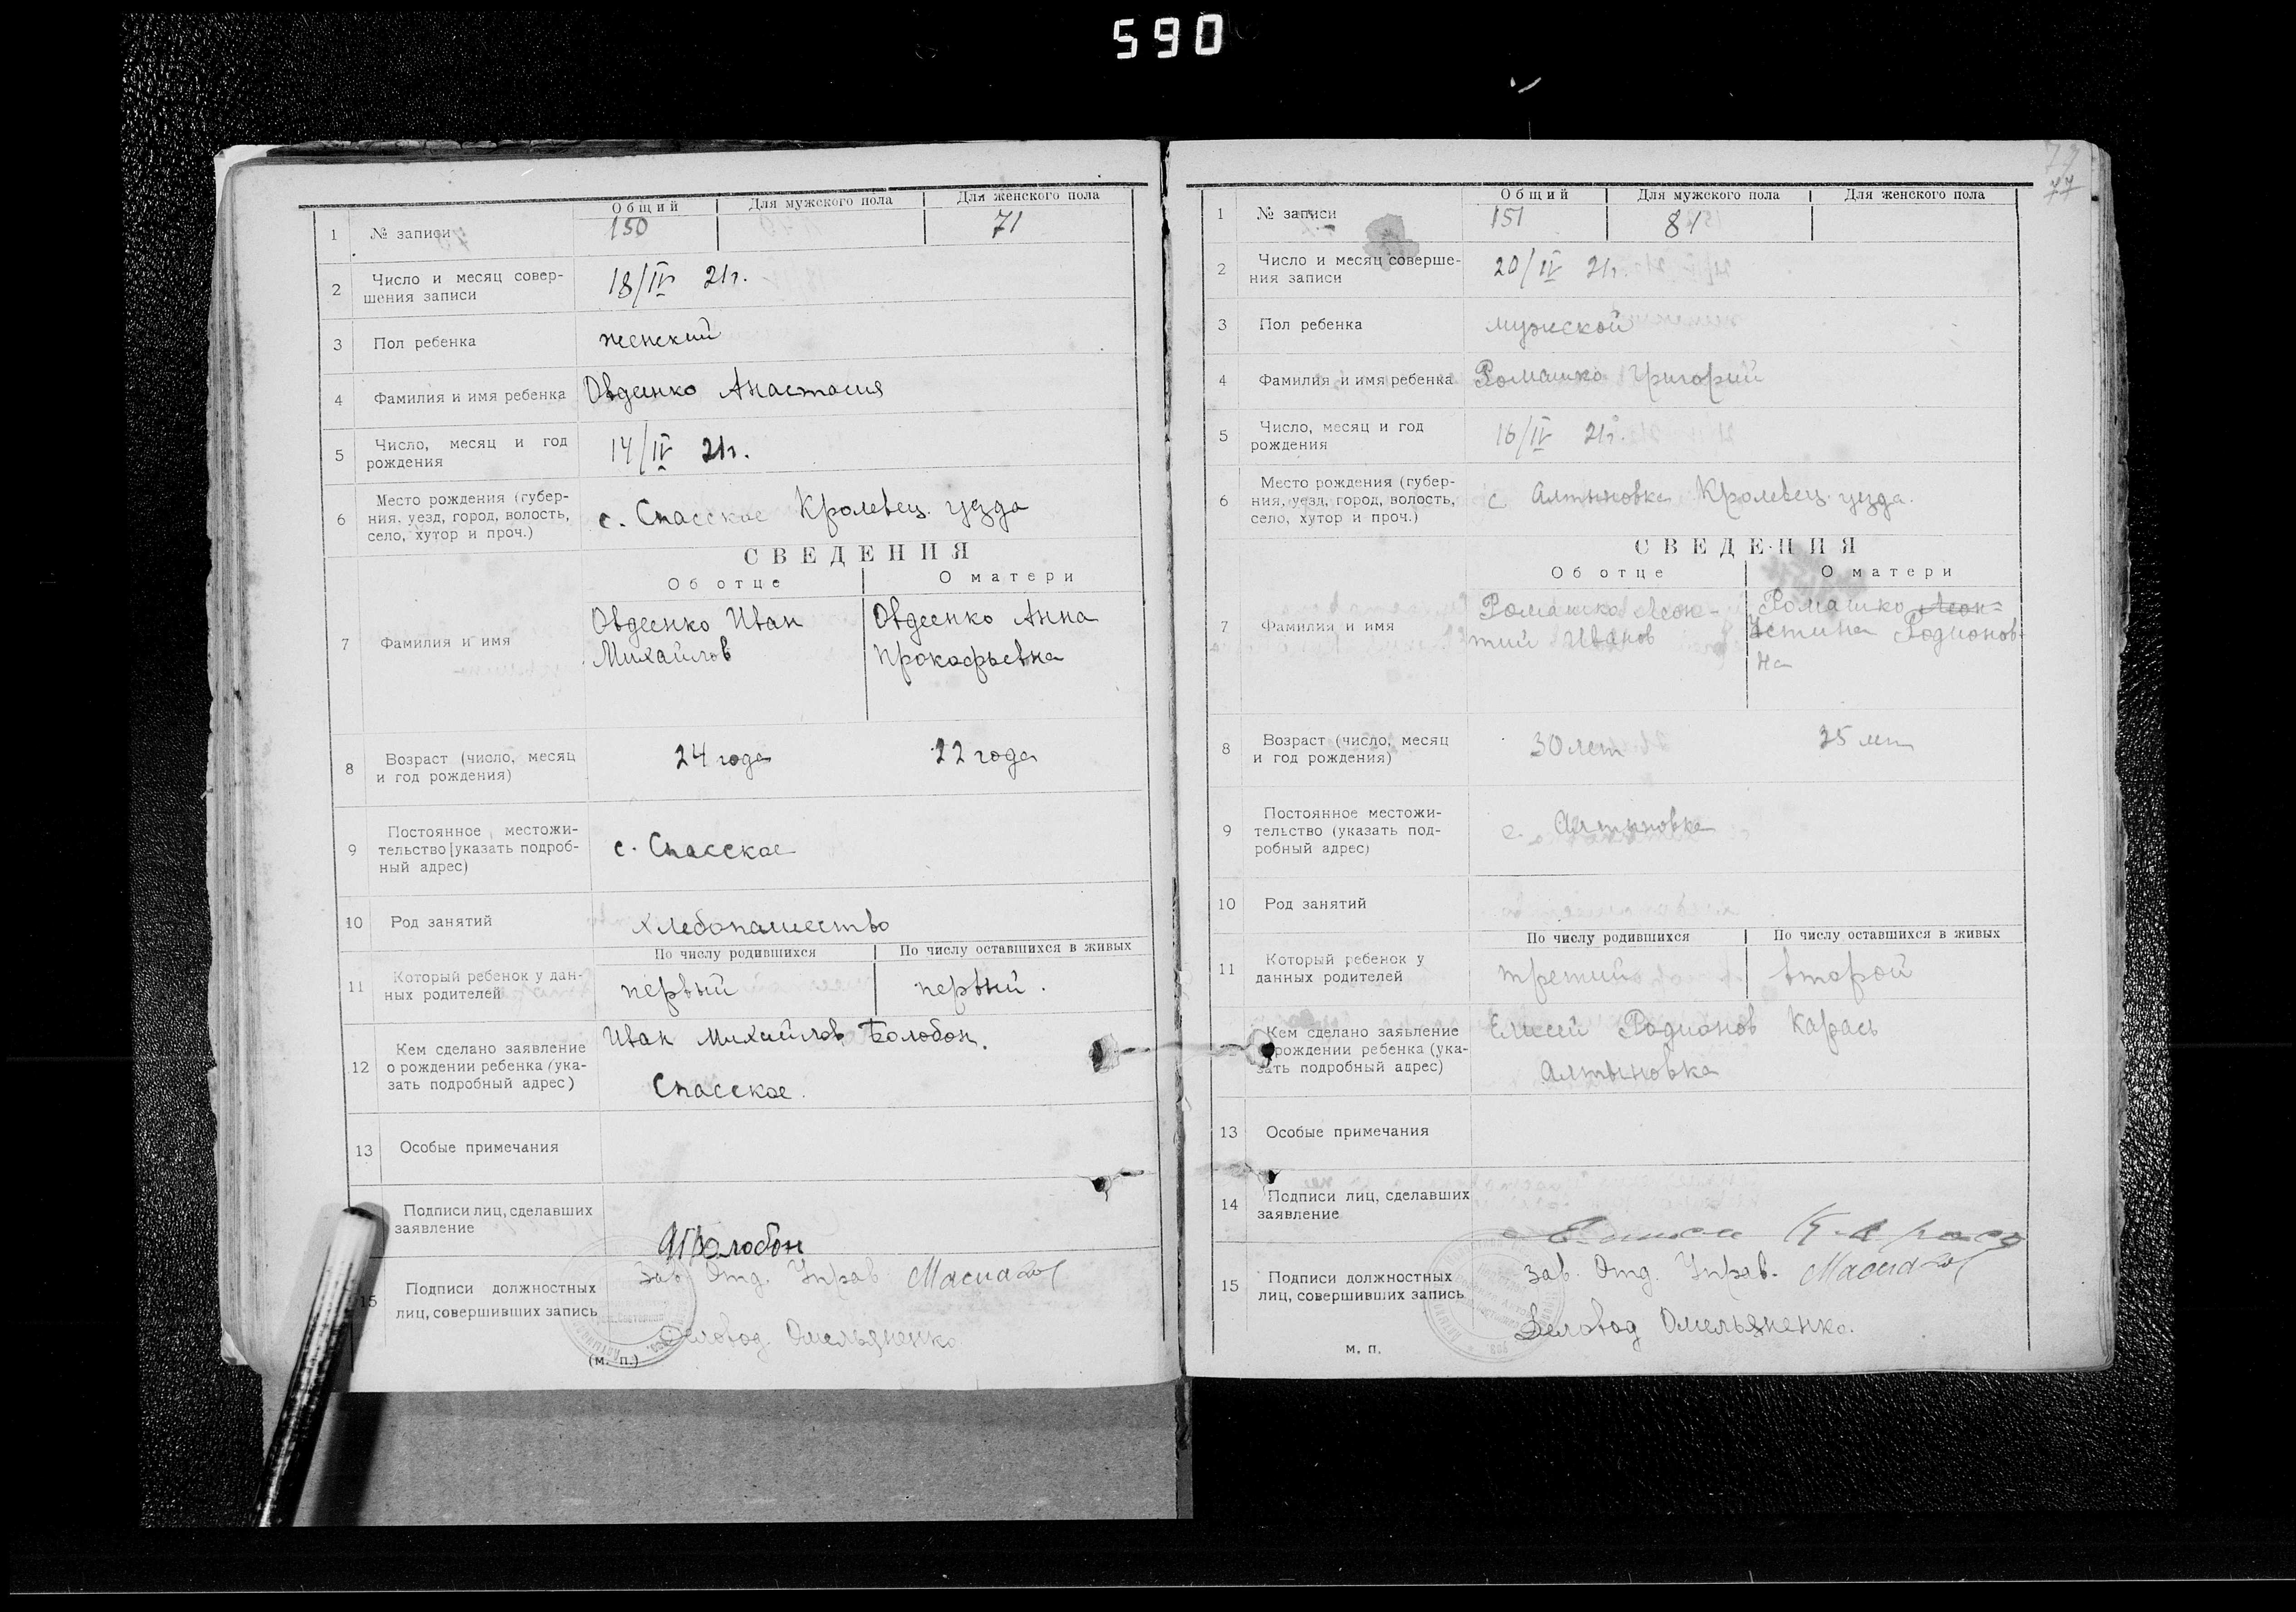 590
Общий Для мужского пола Для женского пола
1 № записи 150 71
2 Число и месяц совер-
шения записи 18/IV 21г.
3 Пол ребенка женский
4 Фамилия и имя ребенка Овдеенко Анастасия
5 Число, месяц и год
рождения 14/IV 21г.
6 Место рождения (губер-
ния, уезд, город, волость,
село, хутор и проч.) с. Спасское Кролевец. уезда
СВЕДЕНИЯ
Об отце О матери
7 Фамилия и имя Овдеенко Иван Овдеенко Анна
Михайлов Прокофьевна
8 Возраст (число, месяц
и год рождения) 24 года 22 года
9 Постоянное местожи-
тельство [указать подроб-
ный адрес) с. Спасское
10 Род занятий хлебопашество
По числу родившихся По числу оставшихся в живых
11 Который ребенок у дан-
ных родителей первый первый.
Иван Михайлов Болобон.
12 Кем сделано заявление
о рождении ребенка (ука-
зать подробный адрес) Спасское.
13 Особые примечания
Подписи лиц, сделавших
заявление Болобон
15 Подписи должностных
лиц, совершивших запись Зав. Отд. Управ.
Деловод. Омельяненко
(м. п.)
77
77
Общий Для мужского пола Для женского пола
1 № записи 151 81
2 Число и месяц соверше-
ния записи 20/IV 21г.
3 Пол ребенка мужской
4 Фамилия и имя ребенка Ромашко Григорий
5 Число, месяц и год
рождения 16/IV 21г.
6 Место рождения (губер-
ния, уезд, город, волость,
село, хутор и проч.) с Алтыновка Кролевец. уезда.
СВЕДЕНИЯ
Об отце О матери
7 Фамилия и имя Ромашко Леон- Ромашко Леон-
тий Иванов Устина Родионов-
на
8 Возраст (число, месяц
и год рождения) 30 лет 25 лет
9 Постоянное местожи-
тельство (указать под-
робный адрес) с. Алтыновка
10 Род занятий
По числу родившихся По числу оставшихся в живых
11 Который ребенок у
данных родителей третий второй
12 Кем сделано заявление Елисей Родионов Карась
о рождении ребенка (ука-
зать подробный адрес) Алтыновка
13 Особые примечания
14 Подписи лиц, сделавших
заявление Карась
15 Подписи должностных
лиц, совершивших запись Зав. Отд. Управ.
Деловод Омельяненко.
м. п.